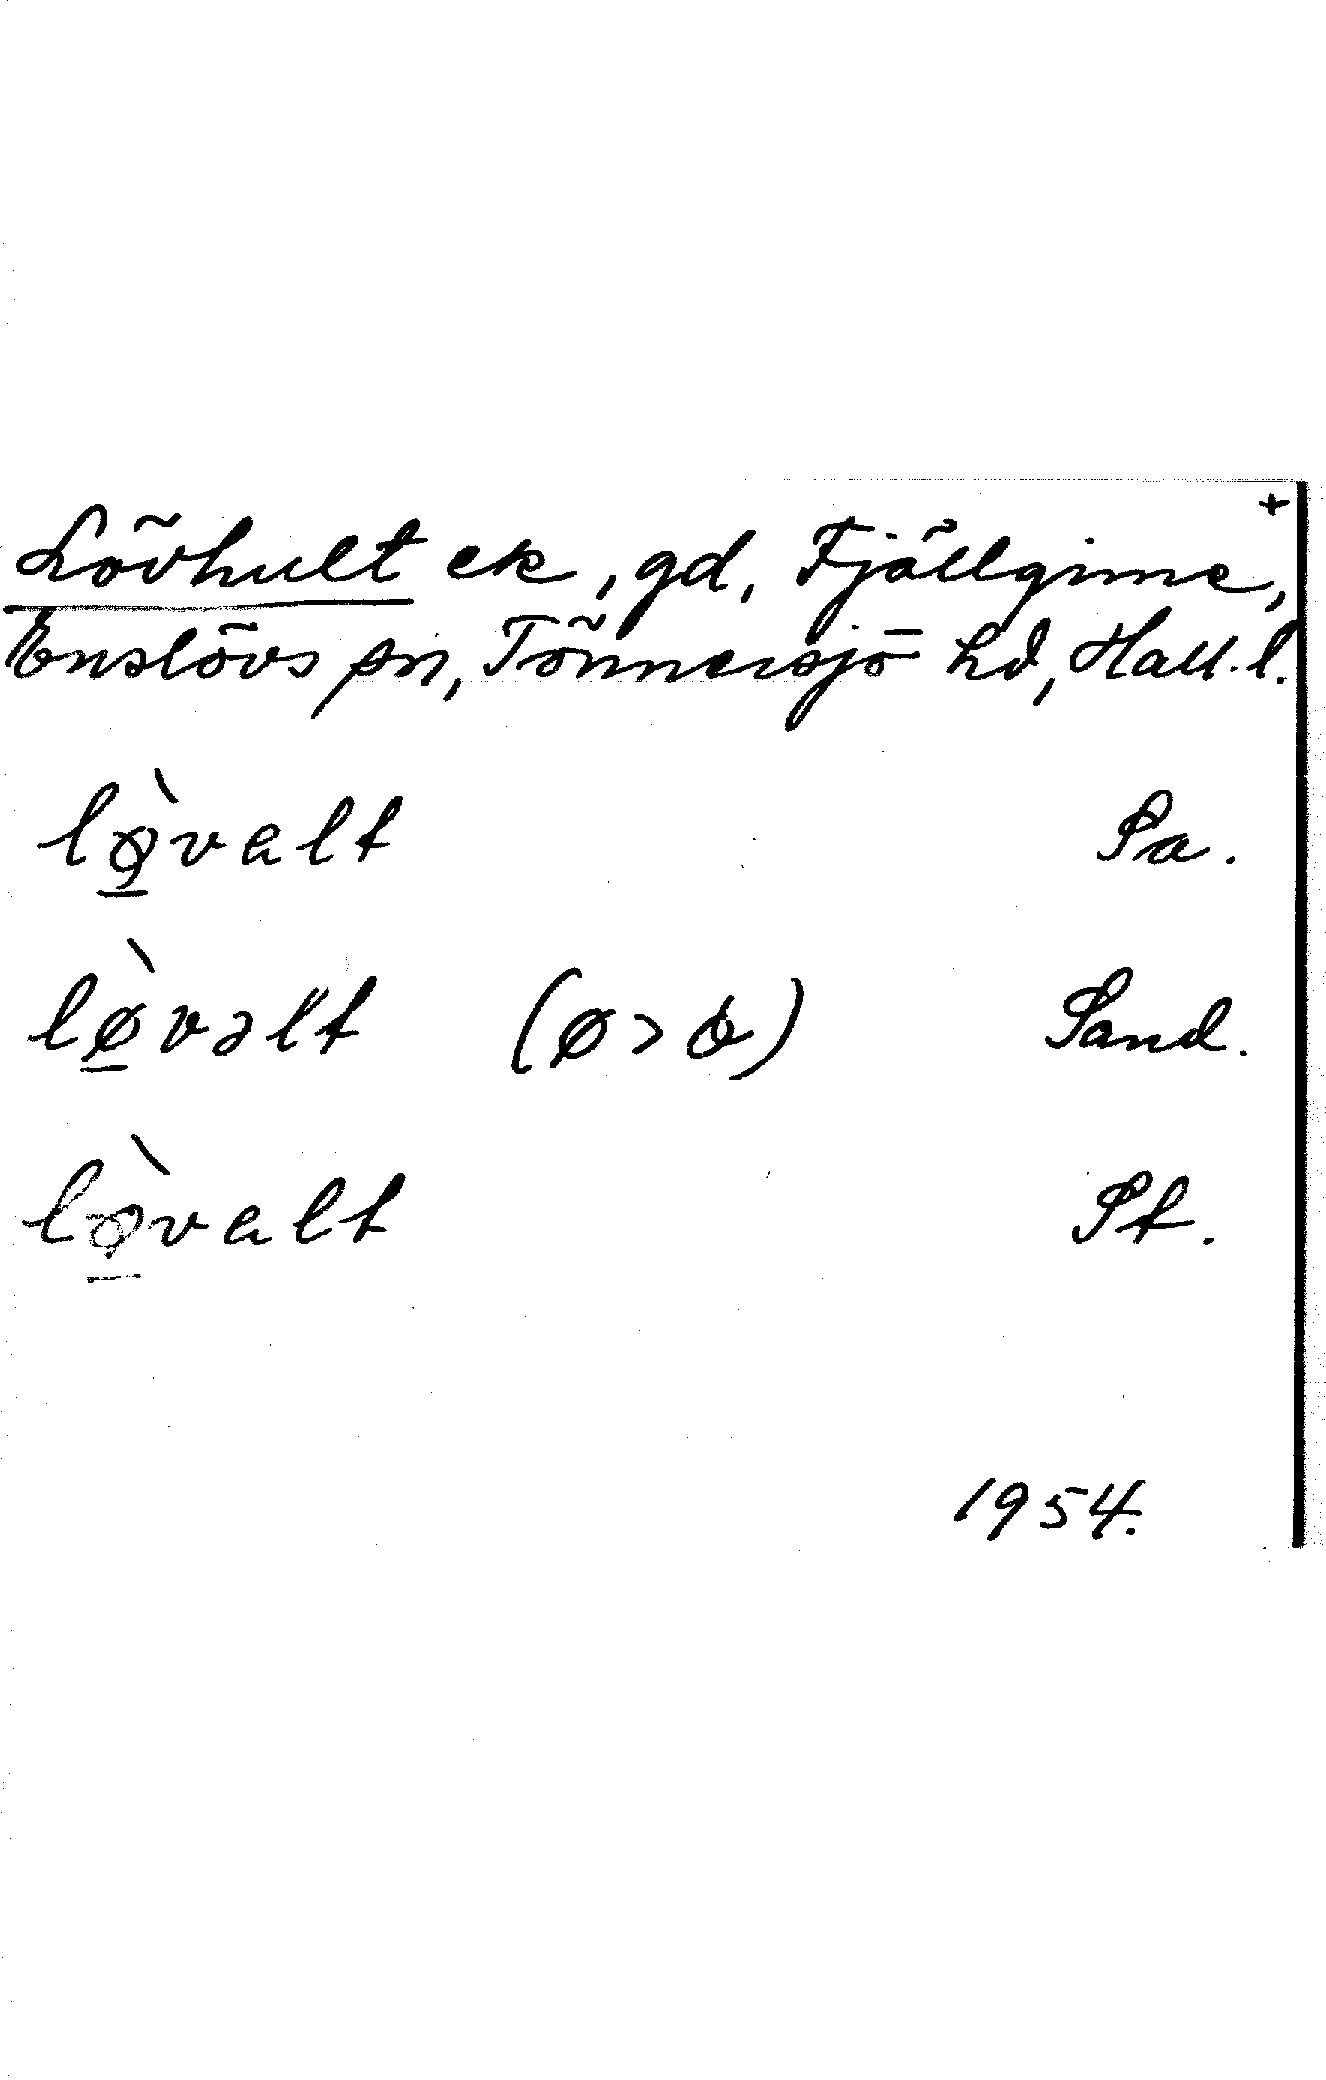 +
Lövhult ek, gd, Fjällginne,
Enslövs sn, Tönnersjö hd, Hall. l.
lø̀valt Sa.
lø̀vəlt (ø > ) Sand.
lø̀valt St.
1954.